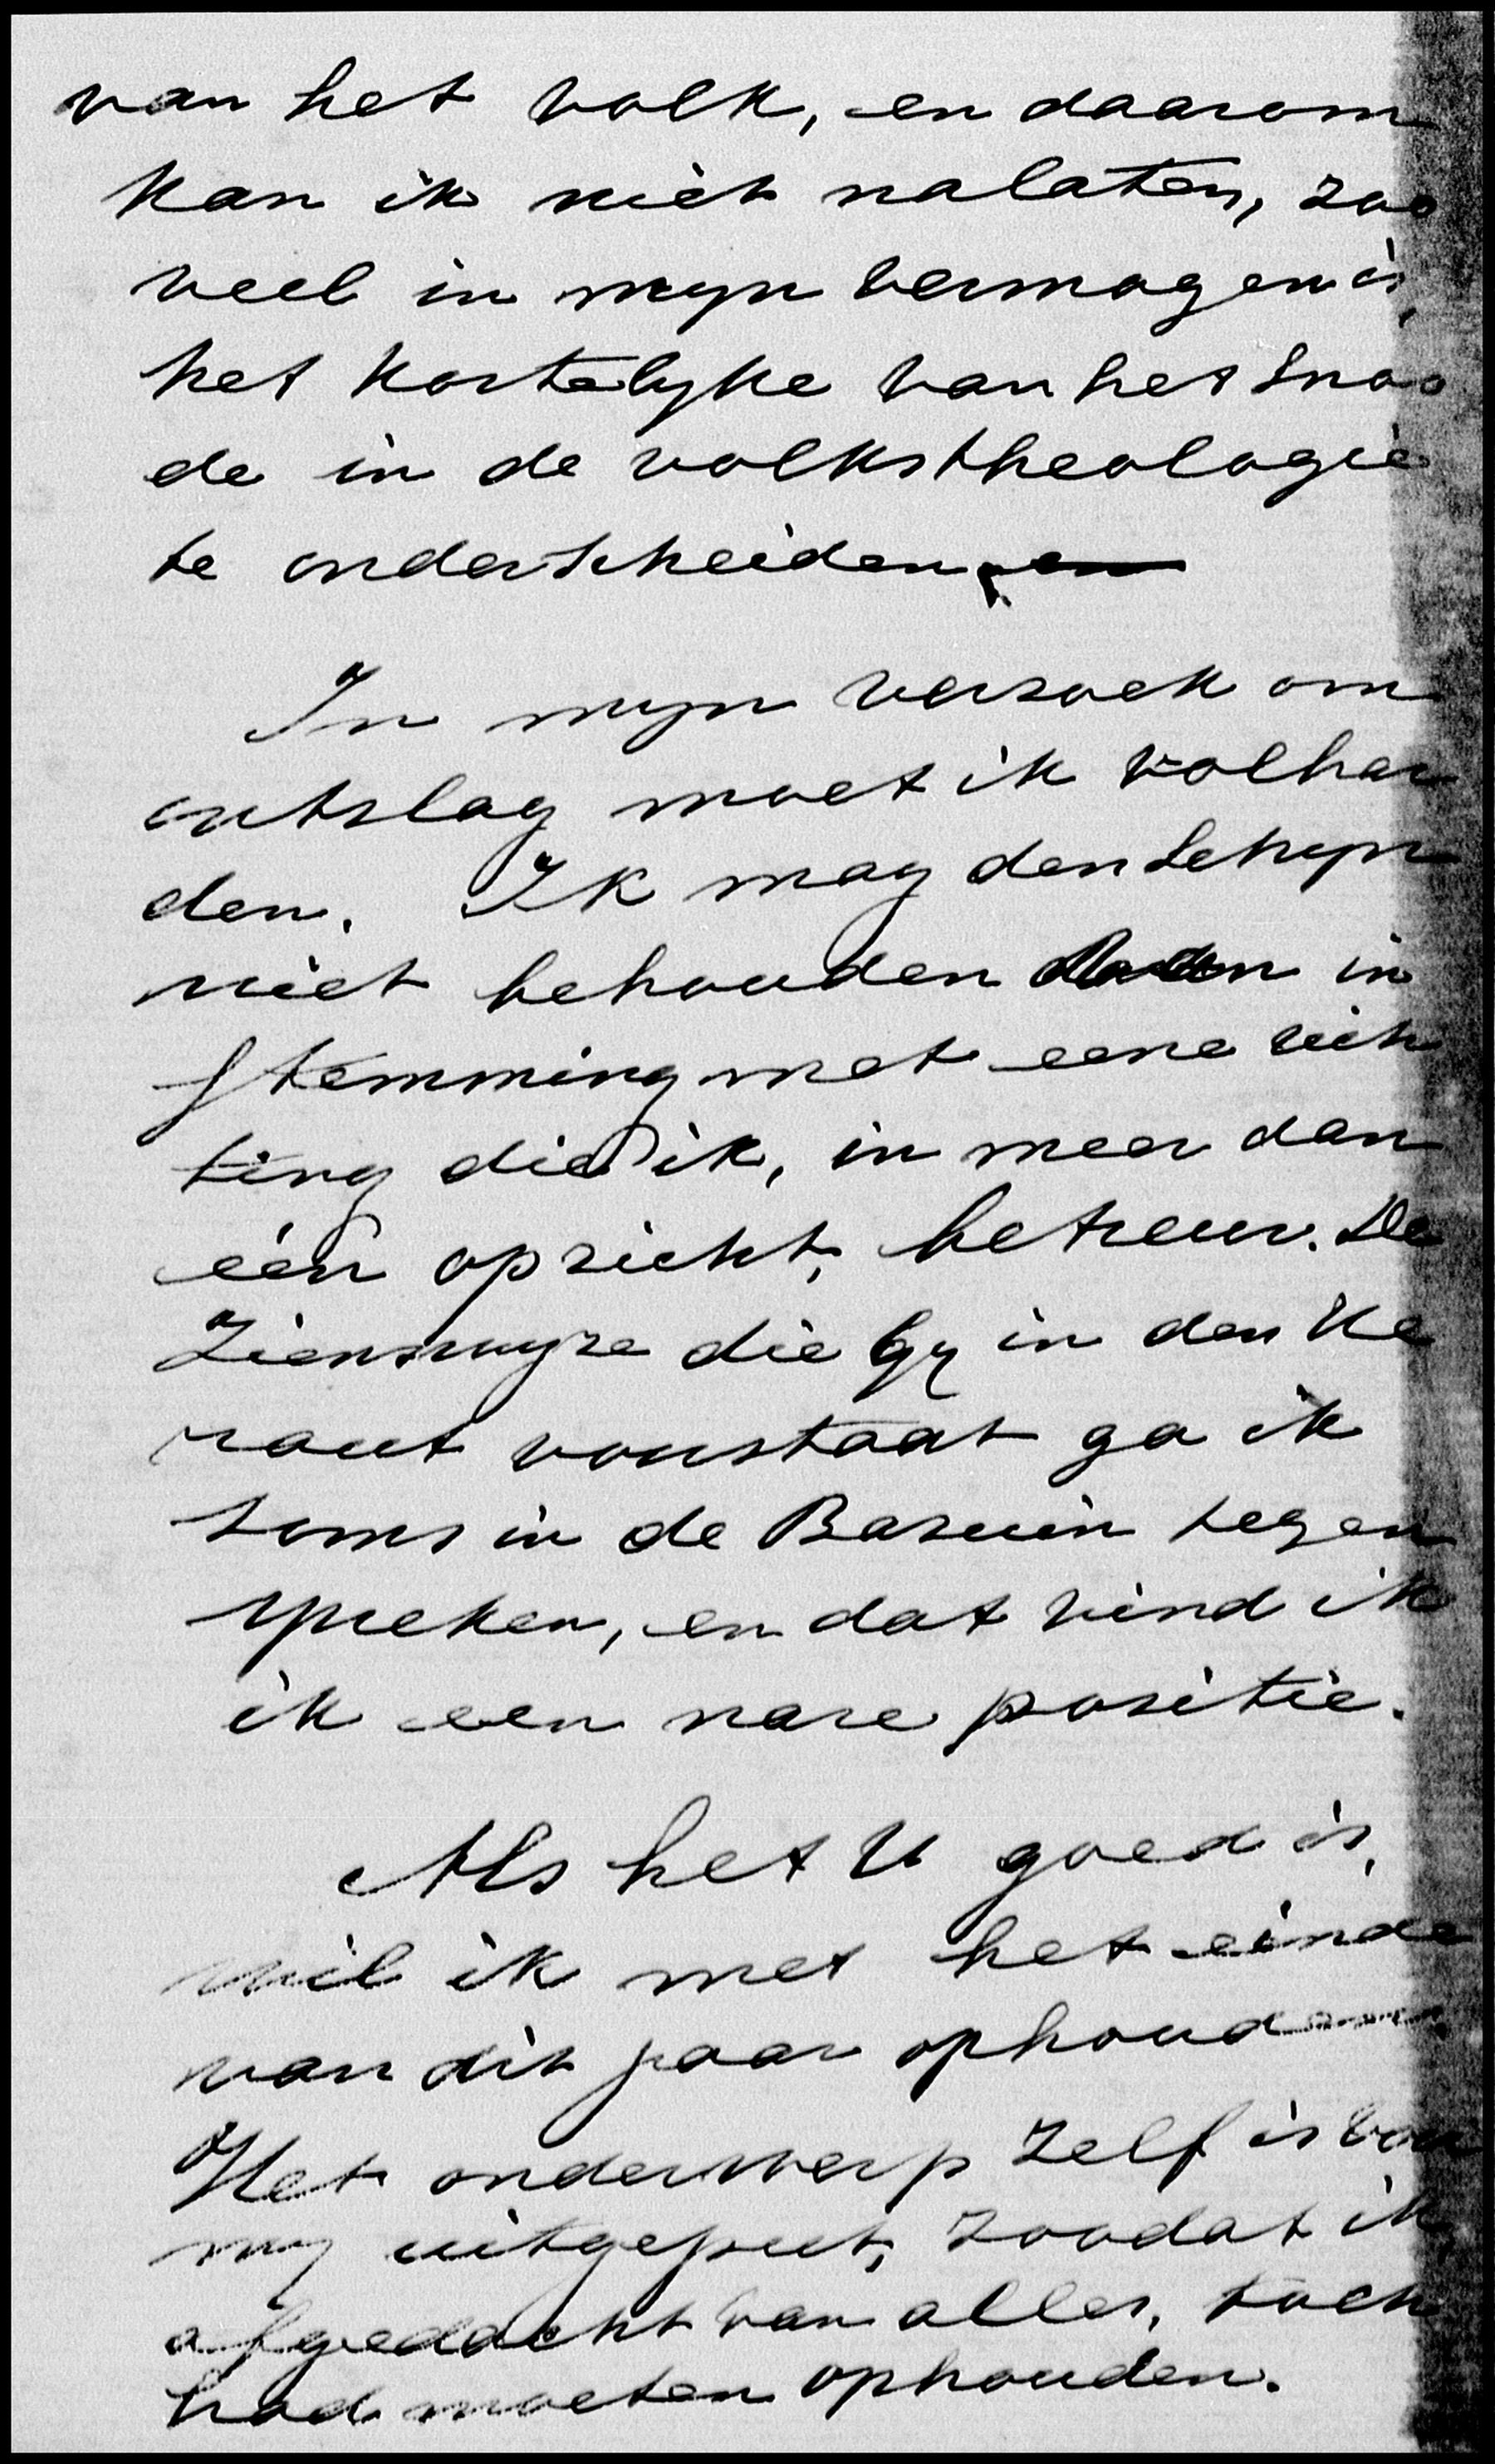 van het volk, en daarom
kan ik niet nalaten, zoo
veel in myn vermogen is,
het kostelyke van het snoo
de in de volkstheologie
te onderscheiden, en
In myn verzoek om
ontslag moet ik volhar
den. Ik mag den schyn
niet behouden in
stemming met eene rich
ting die ik, in meer dan
één opzicht, betreur. De
Zienswyze die Gy in den He
raut voorstaat ga ik
soms in de Bazuin tegen
spreken, en dat vind ik
ik een nare positie.
Als het U goed is,
wil ik met het einde
van dit jaar ophouden.
Het onderwerp zelf is voor
my uitgeput, zoodat ik,
afgedacht van alles, toch
had moeten ophouden.